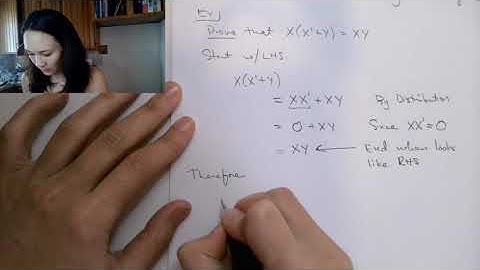 Ex
Prove that X(X'+Y) = XY
Start w/ LHS
X(X'+Y)
= XX' + XY By Distribution
= 0 + XY Since XX' = 0
= XY ← End when looks
like RHS
Therefore